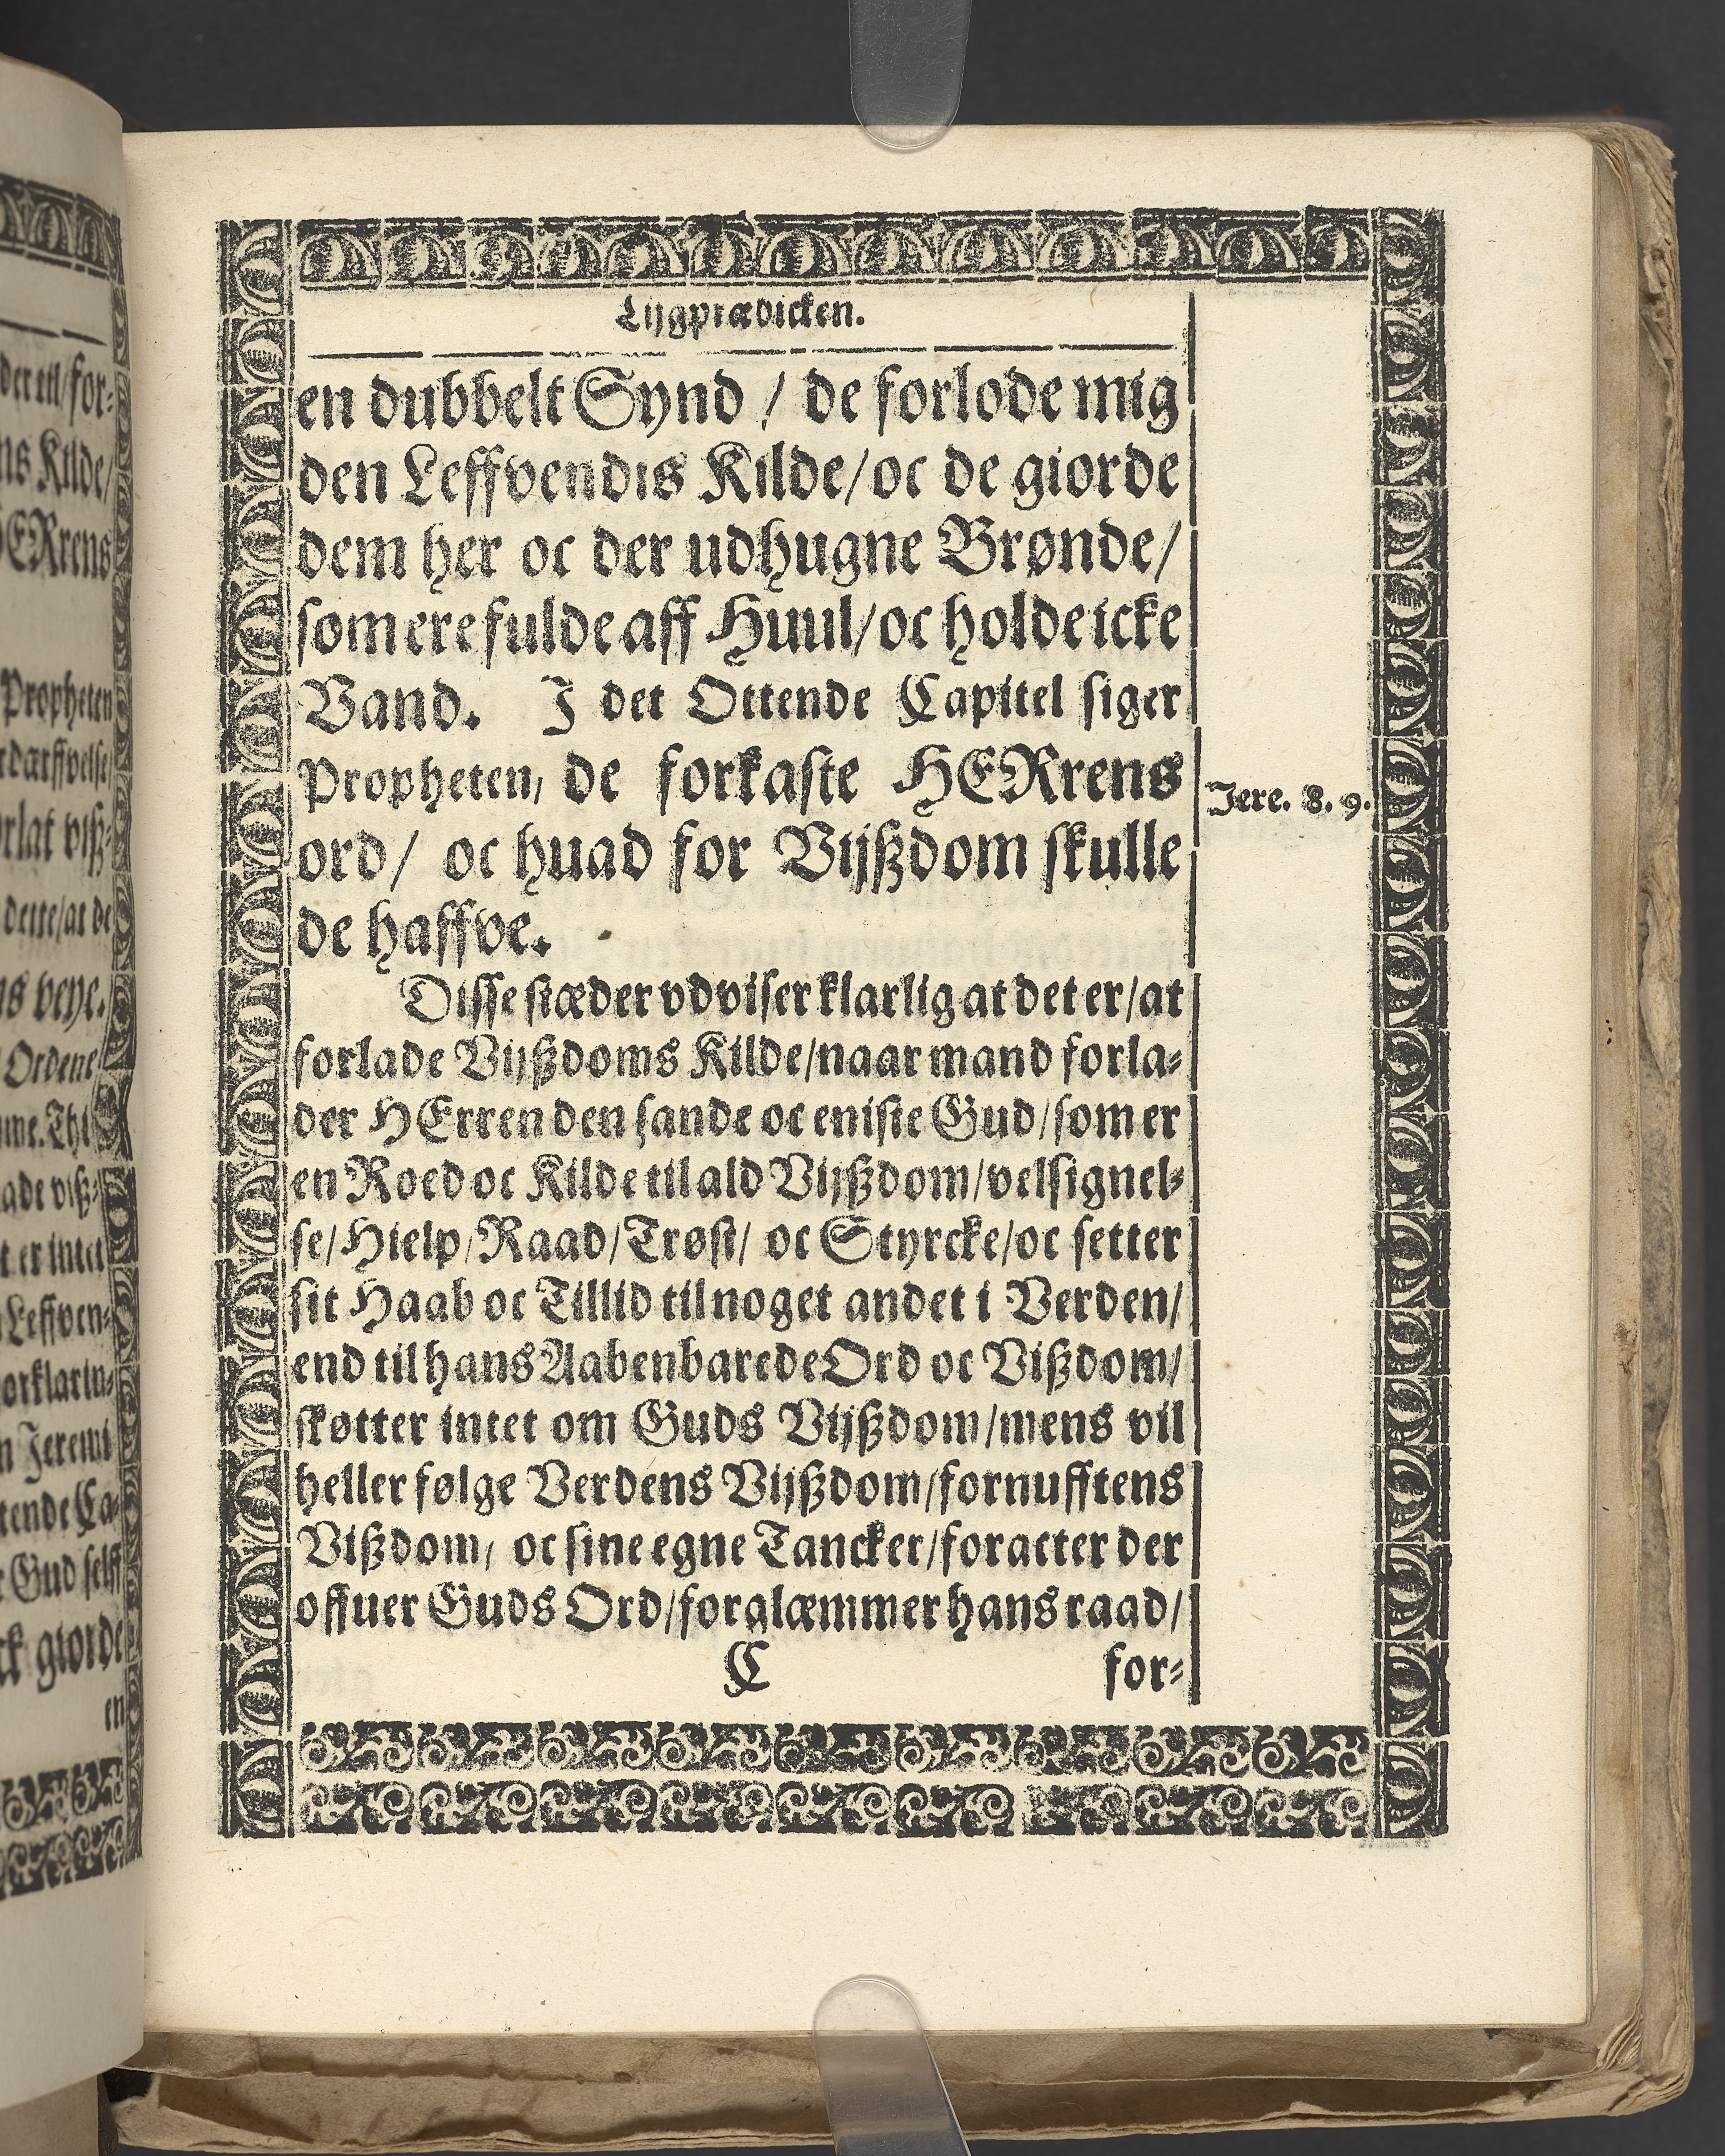 Lijgprædicken.
en dubbelt Synd / de forlode mig
den Leffvendis Kilde/ oc de giorde
dem her oc der udhugne Brønde/
som ere fulde aff Huul/ oc holde icke
Vand. I det Ottende Capitel siger
Propheten, de forkaste HERrens
Jere. 8. 9.
ord/ oc huad for Vijßdom skulle
de haffve.
Disse stæder vdviser klarlig at det er/ at
forlade Vijßdoms Kilde/ naar mand forla-
der HErren den sande oc eniste Gud/ som er
en Roed oc Kilde til ald Vijßdom/ velsignel-
se/ Hielp/ Raad/ Trøst/ oc Styrcke/ oc setter
sit Haab oc Tillid til noget andet i Verden/
end til hans Aabenbarede Ord oc Vißdom/
skøtter intet om Guds Vijßdom/ mens vil
heller følge Verdens Vijßdom/ fornufftens
Vißdom, oc sine egne Tancker/ foracter der
offuer Guds Ord/ forglæmmer hans raad/
C for-
der til/ for-
Kilde/
HERrens
Propheten
dette/ at de
veye.
Ordene
er intet
Leffven-
Jeremi
tende Ca-
Gud selff
giorde
en